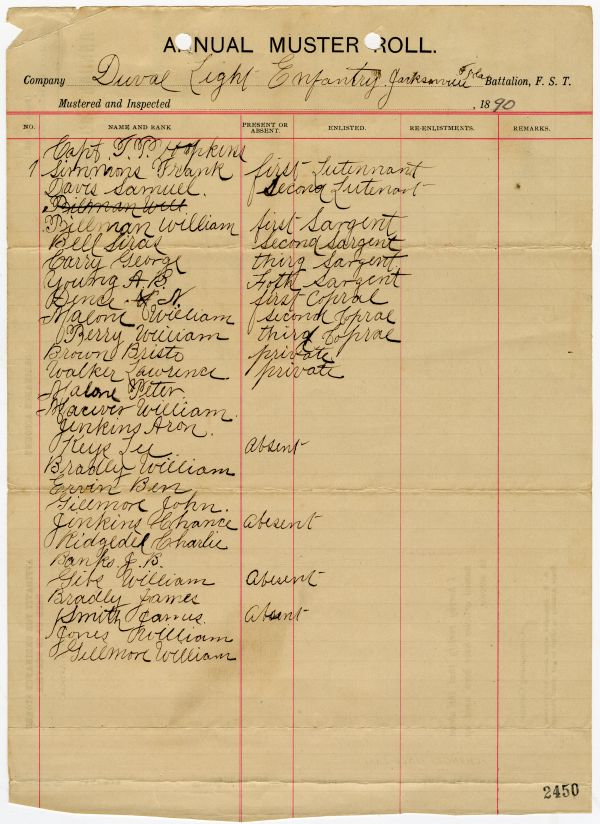 ANNUAL MUSTER ROLL.
Company Duval Light Enfantry Jacksonville Fla Battalion, F. S. T.
Mustered and Inspected , 1890
NO. NAME AND RANK PRESENT OR ABSENT. ENLISTED. RE-ENLISTMENTS. REMARKS.
Capt. T. P. Hopkins
1 Simmons Frank first Lutennant
Davis Samuel. Second Lutenant
Billman Will
Billman William first Sargent
Bell Siras Second Sargent
Carry George third Sargent
Young A. B. Foth Sargent
Dence A. N. first Copral
Malone William Second Coprae
Berry William third Coprae
Brown Bristo private
Walker Lawrence. private
Malone Peter.
Maciver William.
Jenkins Aron.
Keys Absent
Bradly William
Ervin Ben
Gillmore John.
Jenkins Chance Abesent
Ridgedel Charlie
Banks J. B.
Gibs William Abesent
Bradly James
Smith James. Absent
Jones William
Gillmore William
2450